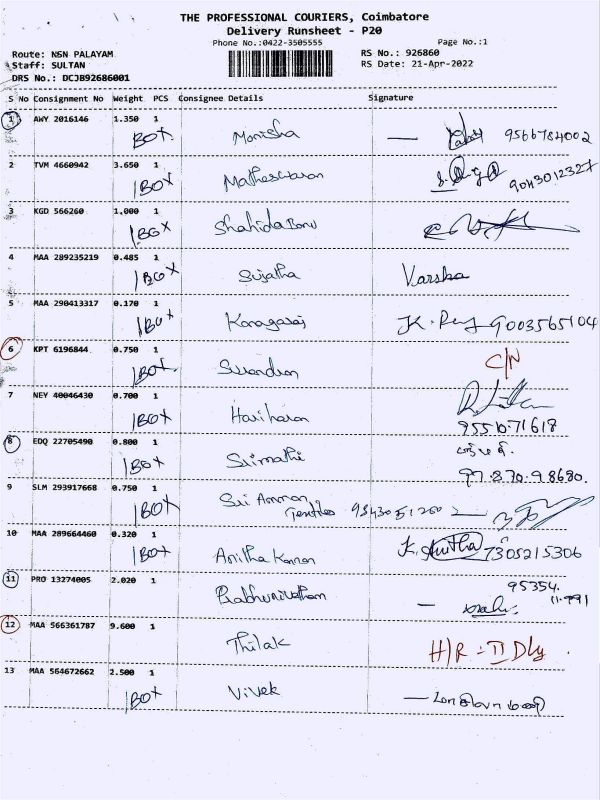 THE PROFESSIONAL COURIERS, Coimbatore
Delivery Runsheet - P20
Phone No.:0422-3505555 Page No.:1
Route: NSN PALAYAM RS No.: 926860
Staff: SULTAN RS Date: 21-Apr-2022
DRS No.: DCJB92686001
S No Consignment No Weight PCS Consignee Details Signature
1 AWY 2016146 1.350 1
BOX Monisha — 9566784002
2 TVM 4660942 3.650 1
1BOX Matheswaran
3 KGD 566260 1.000 1
1BOX Shahida Banu
4 MAA 289235219 0.485 1
1BOX Sujatha Varsha
5 MAA 290413317 0.170 1
1BOX Kanagaraj 9003565104
6 KPT 6196844 0.750 1 C/N
1BOX
7 NEY 40046430 0.700 1
1BOX Hariharan
9551071618
8 EDQ 22705490 0.800 1
1BOX Srimathi 97.870.98680.
9 SLM 293917668 0.750 1
1BOX Sri Amman
10 MAA 289664460 0.320 1
1BOX Anitha Kannan 7305215306
11 PRO 13274005 2.020 1
95354.
11.991
12 MAA 566361787 9.600 1
Thilak H/R = II Dly
13 MAA 564672662 2.500 1
1BOX Vivek —